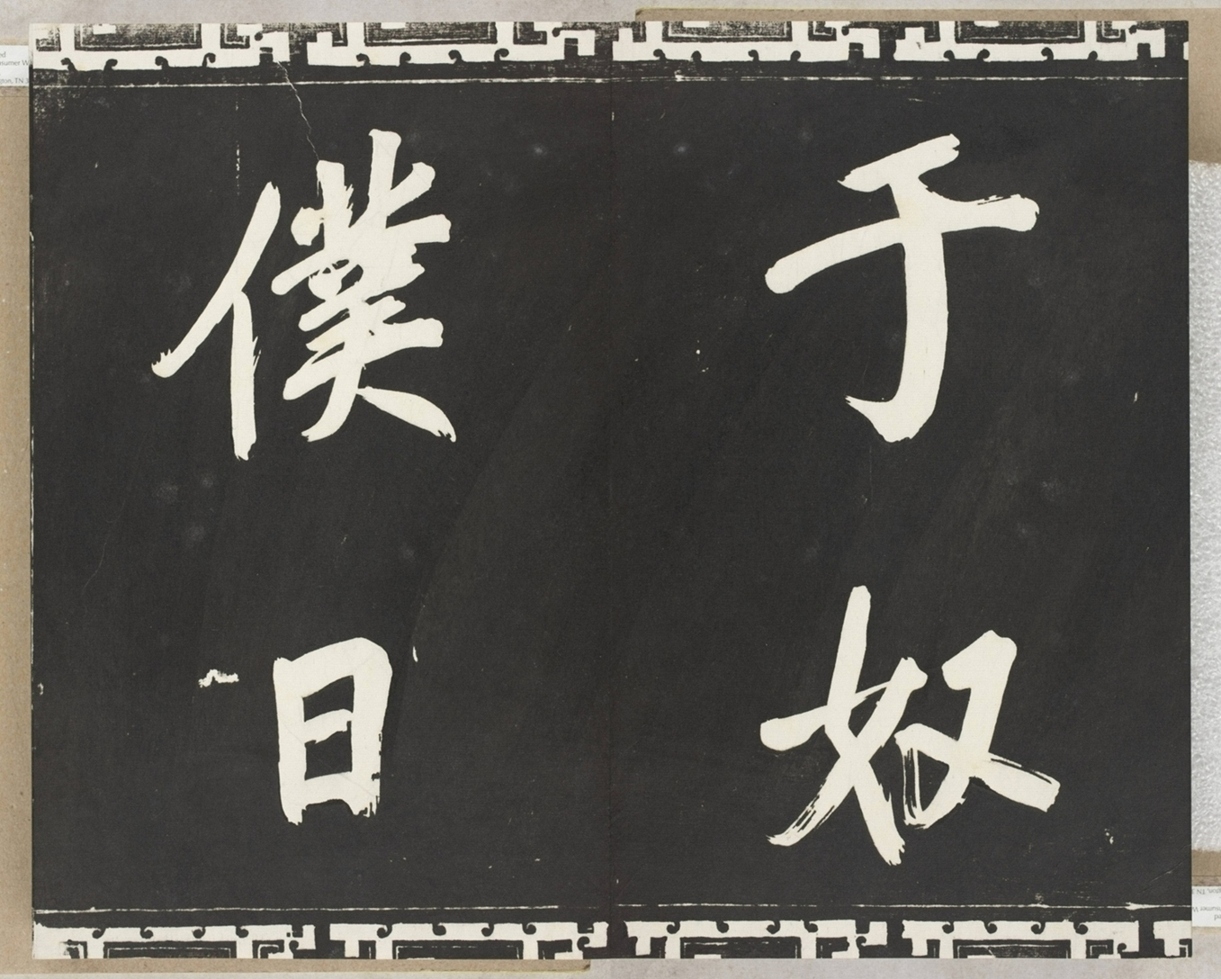 于奴
僕日